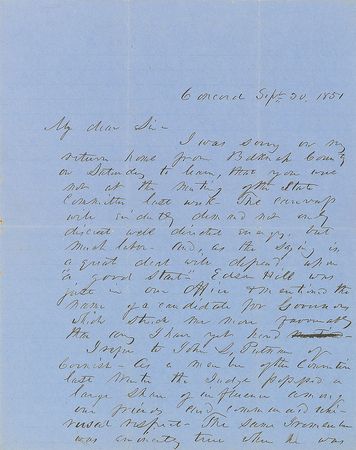 Concord Sept. 30, 1851
My dear Sir -
I was sorry on my
return home from Belknap County
on Saturday to learn, that you were
not at the meeting of the State
Committee last week. The canvass
will evidently demand not only
discreet well directed energy, but
much labor - and, as the saying is
a great deal will depend upon
"a good start". Edson Hill was
just in our office & mentioned the
name of a candidate for Governor
which struck me more favorably
than any I have yet heard
I refer to John S.
Cornish - As a member of the Convention
last Winter the Judge possessed a
large share of influence among
our friends and commanded uni-
versal respect - The same
was eminently true when he was